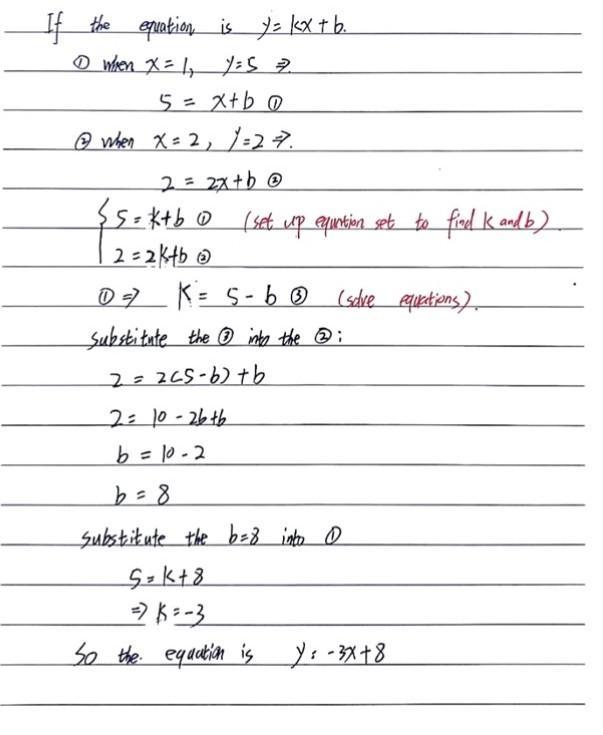 If the equation is y = kx + b.
① when x = 1, y = 5 ⇒.
5 = x + b ①
② when x = 2, y = 2 ⇒.
2 = 2x + b ②
{ 5 = k + b ① (set up equation set to find k and b).
2 = 2k + b ②
① ⇒ k = 5 - b ③ (solve equations).
substitute the ③ into the ②:
2 = 2(5 - b) + b
2 = 10 - 2b + b
b = 10 - 2
b = 8
substitute the b = 8 into ①
5 = k + 8
⇒ k = -3
So the equation is y = -3x + 8